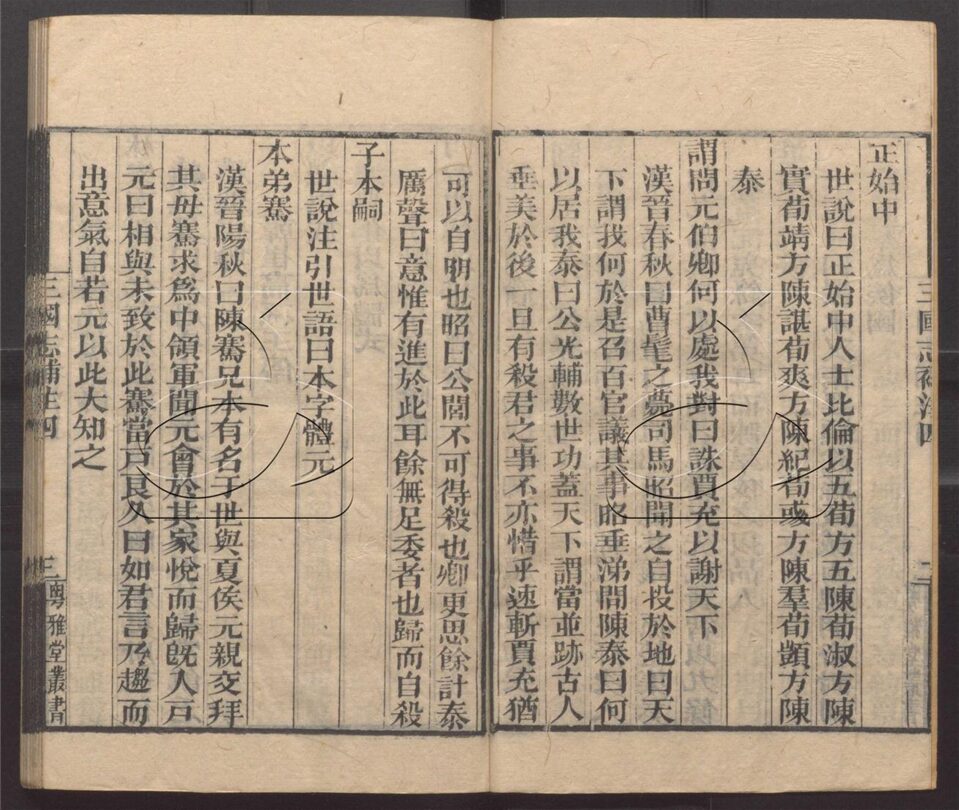 正始中
世說曰正始中人士比倫以五荀方五陳荀淑方陳
寔荀靖方陳諶荀爽方陳紀荀彧方陳羣荀顗方陳
泰
謂問元伯卿何以處我對曰誅賈充以謝天下
漢晉春秋曰曹髦之薨司馬昭聞之自投於地曰天
下謂我何於是召百官議其事昭垂涕問陳泰曰何
以居我泰曰公光輔數世功蓋天下謂當並跡古人
垂美於後一旦有殺君之事不亦惜乎速斬賈充猶
可以自明也昭曰公閭不可得殺也卿更思餘計泰
厲聲曰意惟有進於此耳餘無足委者也歸而自殺
子本嗣
世說注引世語曰本字體元
本弟騫
漢晉陽秋曰陳騫兄本有名于世與夏侯元親交拜
其母騫求爲中領軍聞元會於其家悅而歸旣入戸
元曰相與未致於此騫當戸良久曰如君言乃趨而
出意氣自若元以此大知之
三國志補注四
三
粵雅堂叢書